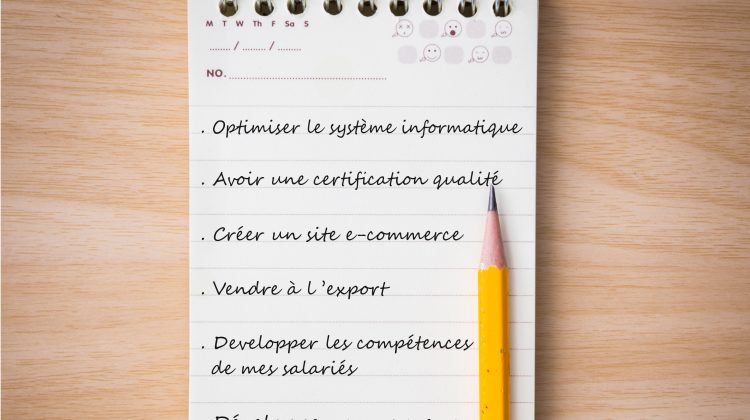 M T W Th F Sa S
....... / ........ / ........
NO. ................................................
. Optimiser le système informatique
. Avoir une certification qualité
. Créer un site e-commerce
. Vendre à l'export
. Developper les compétences
de mes salariés